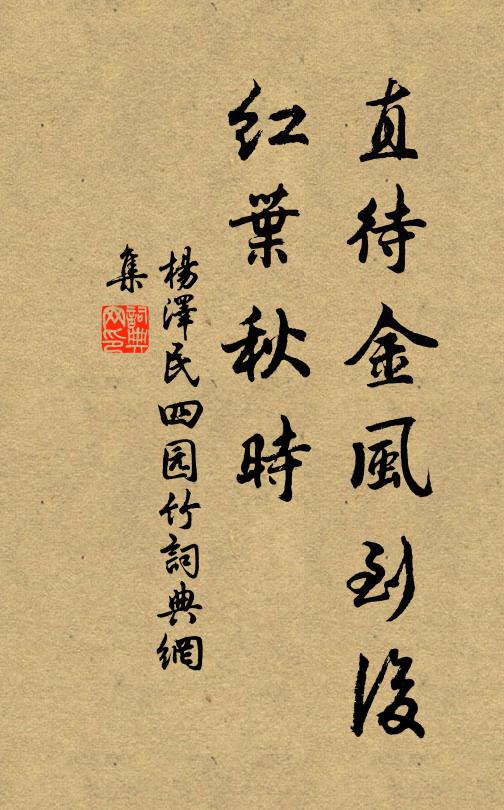 直待金風到後
紅葉秋時
楊澤民四园竹詞典網
集
詞典
网印